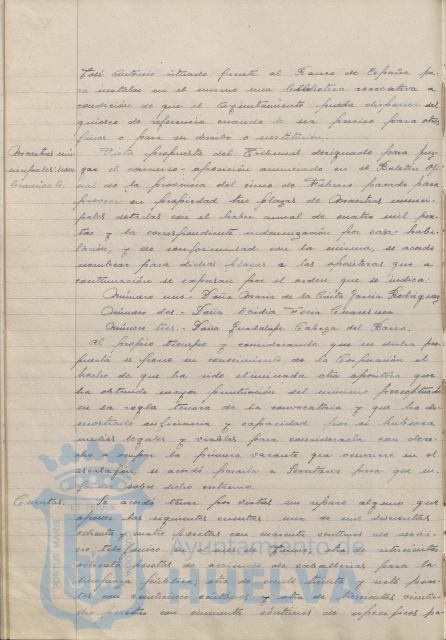 José Antonio situado frente al Banco de España pa-
ra instalar en el mismo una biblioteca recreativa a
condición de que el Ayuntamiento pueda disponer del
quiosco de referencia cuando le sea preciso para otros
fines o para su derribo o sustitución.
Maestras mu-
nicipales: nom-
bramiento.
Vista propuesta del Tribunal designado para juz-
gar el concurso-oposición anunciado en el Boletín Ofi-
cial de la provincia del cinco de Febrero pasado para
proveer en propiedad tres plazas de Maestras munici-
pales dotadas con el haber anual de cuatro mil pese-
tas y la correspondiente indemnización por casa-habi-
tación, y de conformidad con la misma, se acordó
nombrar para dichas plazas a las opositoras que a
continuación se expresan por el orden que se indica:
Número uno.- Doña María de la Cinta García Rodríguez
Número dos.- Doña
Número tres.- Doña Guadalupe Cabeza del Barco.
Al propio tiempo y considerando que en dicha pro-
puesta se pone en conocimiento de la Corporación el
hecho de que ha sido eliminada otra opositora que
ha obtenido mayor puntuación del mínimo
en la regla tercera de la convocatoria y que ha de-
mostrado suficiencia y capacidad por si hubiera
medios legales y viables para considerarla con dere-
cho a ocupar la primera vacante que ocurriere en el
escalafón, se acordó pasarla a Secretaría para que in-
forme sobre dicho extremo.
Cuentas.- Se acordó tener por vistas sin reparo alguno que
oponer las siguientes cuentas: una de mil doscientas
ochenta y cuatro pesetas con cincuenta céntimos de servi-
cio telefónico del mes de Junio; otra de
ochenta pesetas de arriendo de caballerías para la
limpieza pública; otra de ciento treinta y siete pese-
tas con veinticinco céntimos y otra de trescientas
pesetas con cincuenta céntimos de pa-
PORTUS MARIS
Ayuntamiento de
HUELVA